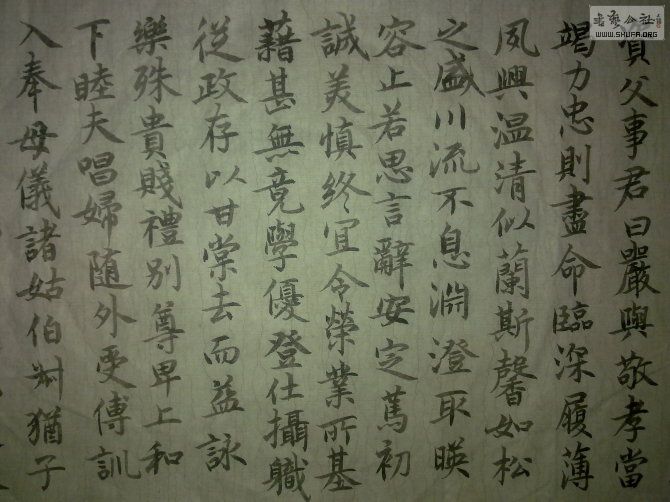 資父事君曰嚴與敬孝當
竭力忠則盡命臨深履薄
夙興温清似蘭斯馨如松
之盛川流不息淵澄取暎
容止若思言辭安定篤初
誠美慎終宜令榮業所基
藉甚無竟學優登仕攝職
從政存以甘棠去而益詠
樂殊貴賤禮別尊卑上和
下睦夫唱婦隨外受傅訓
入奉母儀諸姑伯叔猶子
書藝公社
WWW.SHUFA.ORG